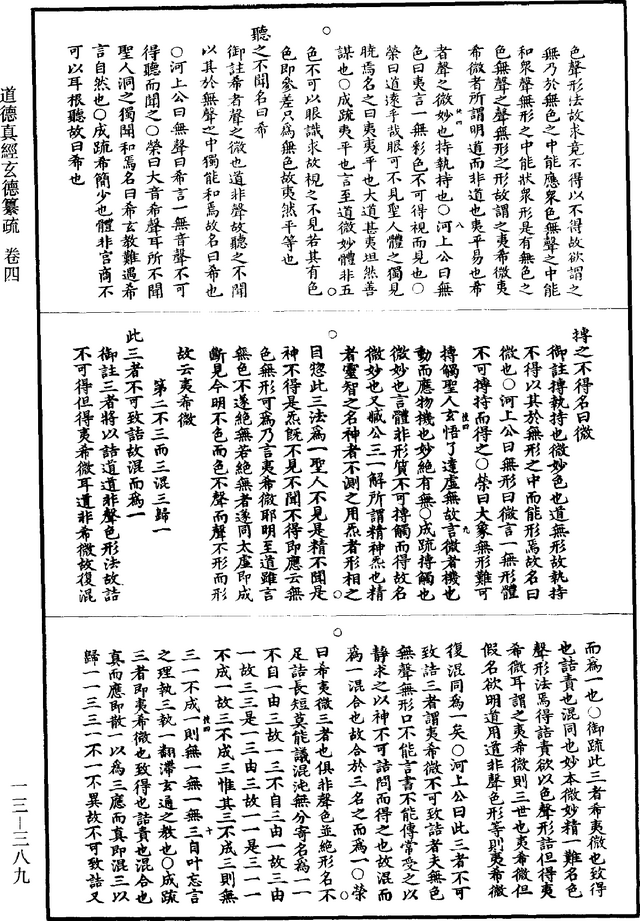 色聲形法故求竟不得以不得故欲謂之
無乃於無色之中能應衆色無聲之中能
和衆聲無形之中能狀衆形是有無色之
色無聲之聲無形之形故謂之夷希微夷
希微者所謂明道而非道也夷平易也希
者聲之微妙也摶執持也○河上公曰無
色曰夷言一無彩色不可得視而見也○
榮曰道遠乎哉眼可不見聖人體之獨見
曉焉名之曰夷夷平也大道甚夷坦然善
謀也○成疏夷平也言至道微妙體非五
色不可以眼識求故視之不見若其有色
色即參差只為無色故夷然平等也
聽之不聞名曰希
御註希者聲之微也道非聲故聽之不聞
以其於無聲之中獨能和焉故名曰希也
○河上公曰無聲曰希言一無音聲不可
得聽而聞之○榮曰大音希聲耳所不聞
聖人洞之獨聞和焉名曰希玄教難遇希
言自然也○成疏希簡少也體非宮商不
可以耳根聽故曰希也
道德真經玄德纂疏 卷四
摶之不得名曰微
御註摶執持也微妙色也道無形故執持
不得以其於無形之中而能形焉故名曰
微也○河上公曰無形曰微言一無形體
不可摶持而得之○榮曰大象無形難可
摶觸聖人玄悟了達虛無故言微者機也
動而應物機也妙絕有無○成疏摶觸也
微妙也言體非形質不可摶觸而得故名
微妙也又臧公三一解所謂精神炁也精
者靈智之名神者不測之用炁者形相之
目惣此三法為一聖人不見是精不聞是
神不得是炁既不見不聞不得即應云無
色無形可為乃言夷希微耶明至道雖言
無色不遂絕無若絕無者遂同太虛即成
斷見今明不色而色不聲而聲不形而形
故云夷希微
第二不三而三混三歸一
此三者不可致詰故混而為一
御註三者將以詰道道非聲色形法故詰
不可得但得夷希微耳道非希微故復混
而為一也○御疏此三者希夷微也致得
也詰責也混同也妙本微妙精一難名色
聲形法焉得詰責欲以色聲形詰但得夷
希微耳謂之夷希微則三世也夷希微但
假名欲明道用道非聲色形等則夷希微
復混同為一矣○河上公曰此三者不可
致詰三者謂夷希微不可致詰者夫無色
無聲無形口不能言書不能傳當受之以
靜求之以神不可詰問而得之也故混而
為一混合也故合於三名之而為一○榮
曰希夷微三者也俱非聲色並絕形名不
足詰長短莫能議混沌無分寄名為一一
不自一由三故一三不自三由一故三由
一故三三是一三由三故一一是三一一
不成一故三不成三惟其三不成三則無
三一不成一則無一無一無三自叶忘言
之理執三執一翻滯玄通之教也○成疏
三者即夷希微也致得也詰責也混合也
真而應即散一以為三應而真即混三以
歸一一三三一不一不異故不可致詰又
一三—三八九